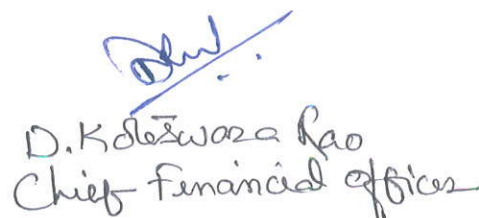 D. Koteswara Rao
Chief Financial Officer